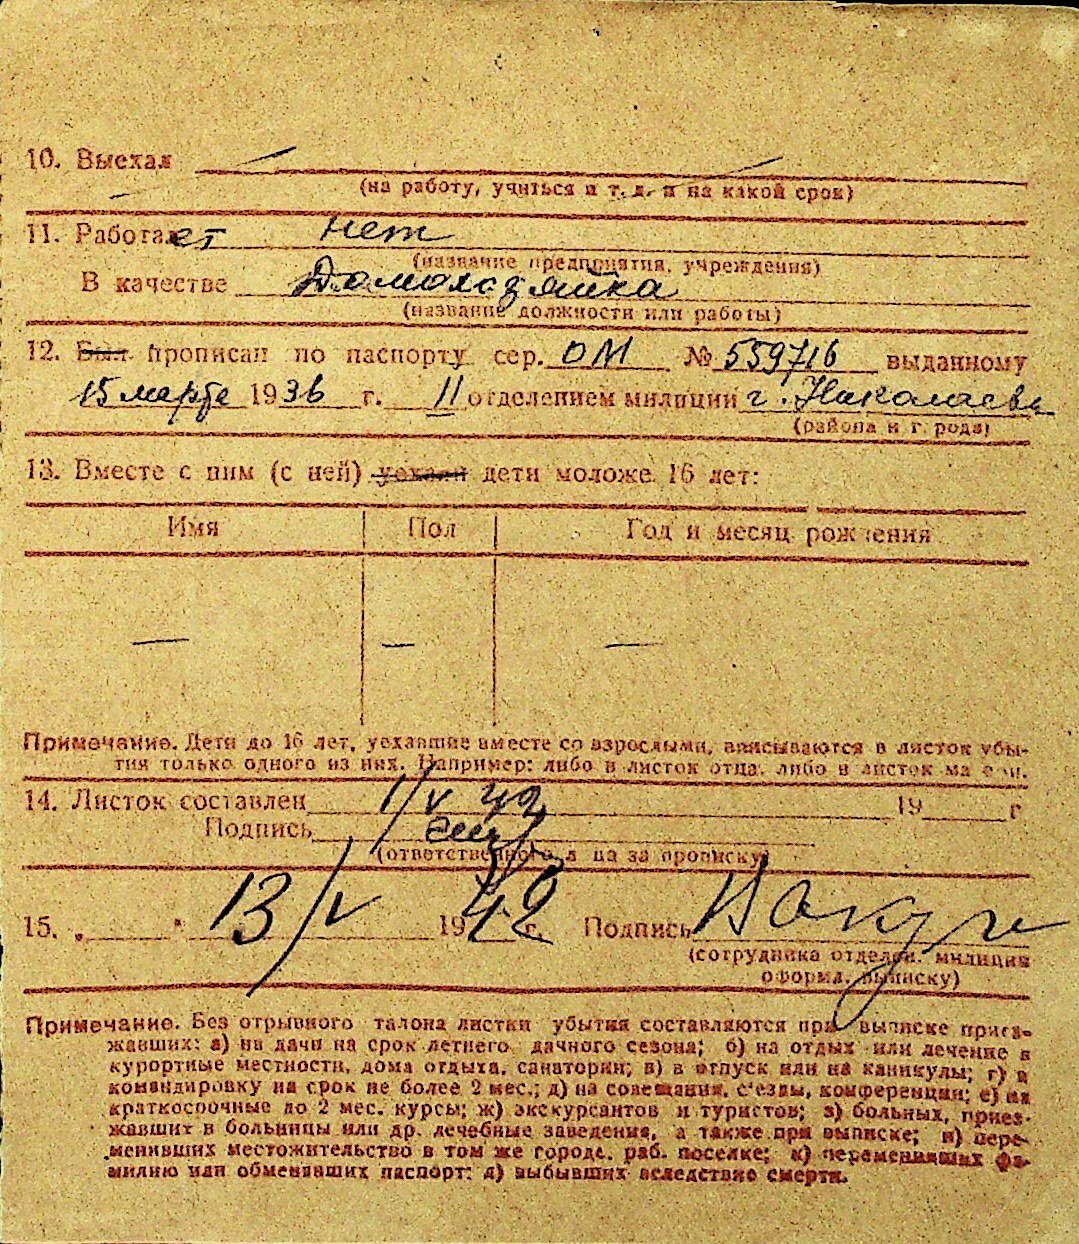 10. Выехал
(на работу, учиться и т. д. и на какой срок)
11. Работает нет
(название предприятия, учреждения)
В качестве Домохозяйка
(название должности или работы)
12. Был прописан по паспорту сер. ОМ № 559716 выданному
15 марта 1936 г. II отделением милиции г. Николаева
(района и города)
13. Вместе с ним (с ней) уехали дети моложе 16 лет:
Имя Пол Год и месяц рождения
— — —
Примечание. Дети до 16 лет, уехавшие вместе со взрослыми, вписываются в листок убы-
тия только одного из них. Например: либо в листок отца, либо в листок матери.
14. Листок составлен 1/V 42 19 г
Подпись
(ответственного лица за прописку)
15. „ " 13/V 1942 г. Подпись
(сотрудника отделен. милиции
оформл. выписку)
Примечание. Без отрывного талона листки убытия составляются при выписке приез-
жавших: а) на дачи на срок летнего дачного сезона; б) на отдых или лечение в
курортные местности, дома отдыха, санатории; в) в отпуск или на каникулы; г) в
командировку на срок не более 2 мес.; д) на совещания, съезды, конференции; е) на
краткосрочные до 2 мес. курсы; ж) экскурсантов и туристов; з) больных, приез-
жавших в больницы или др. лечебные заведения, а также при выписке; и) пере-
менивших местожительство в том же городе, раб. поселке; к) переменивших фа-
милию или обменявших паспорт; л) выбывших вследствие смерти.